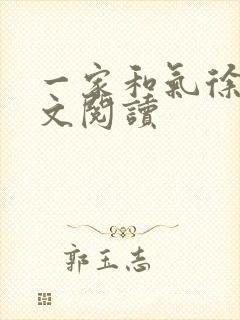 一家和氣徐
文閱讀
郭玉志